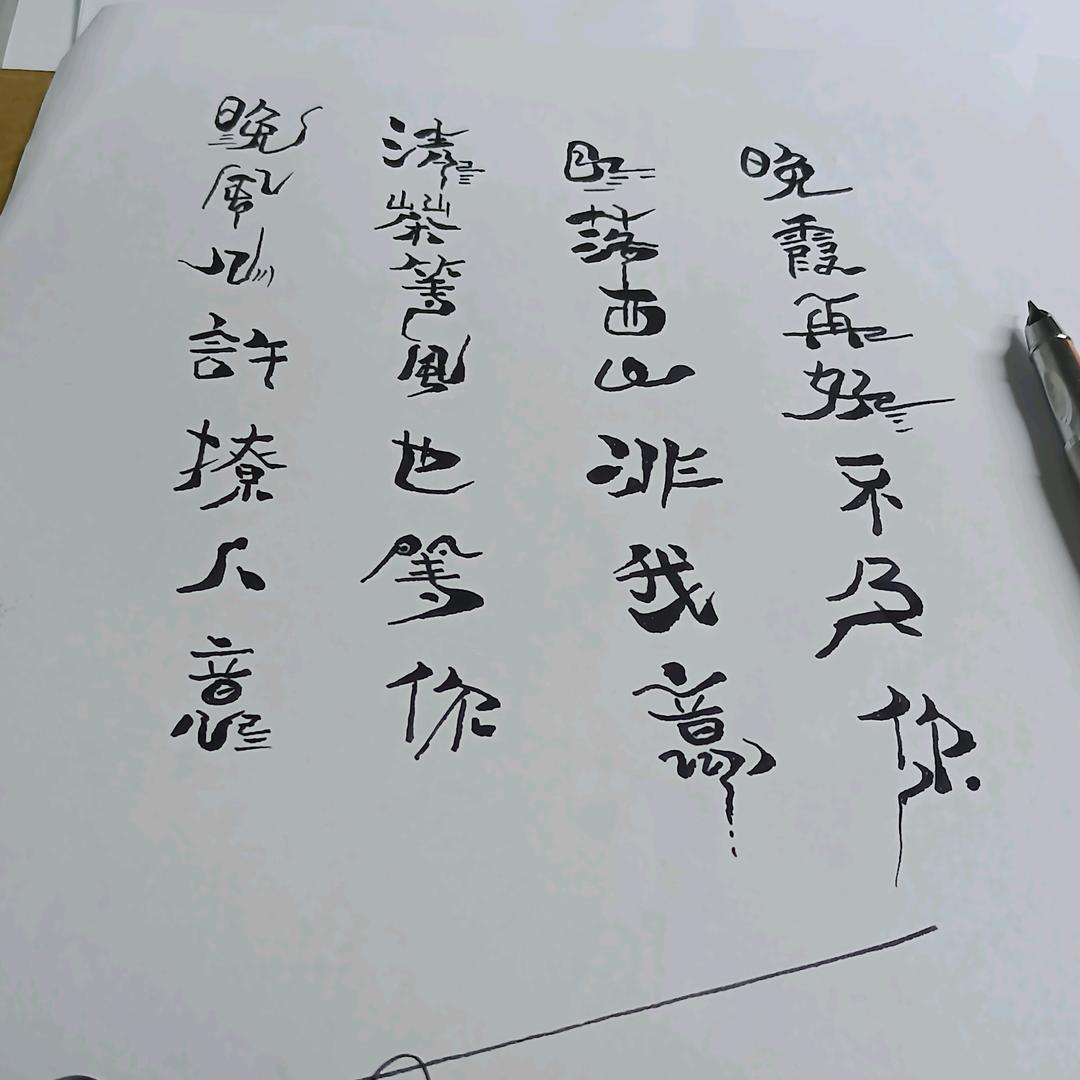 晚風几許撩人意
清茶等風也等你
日落西山非我意
晚霞再好不及你